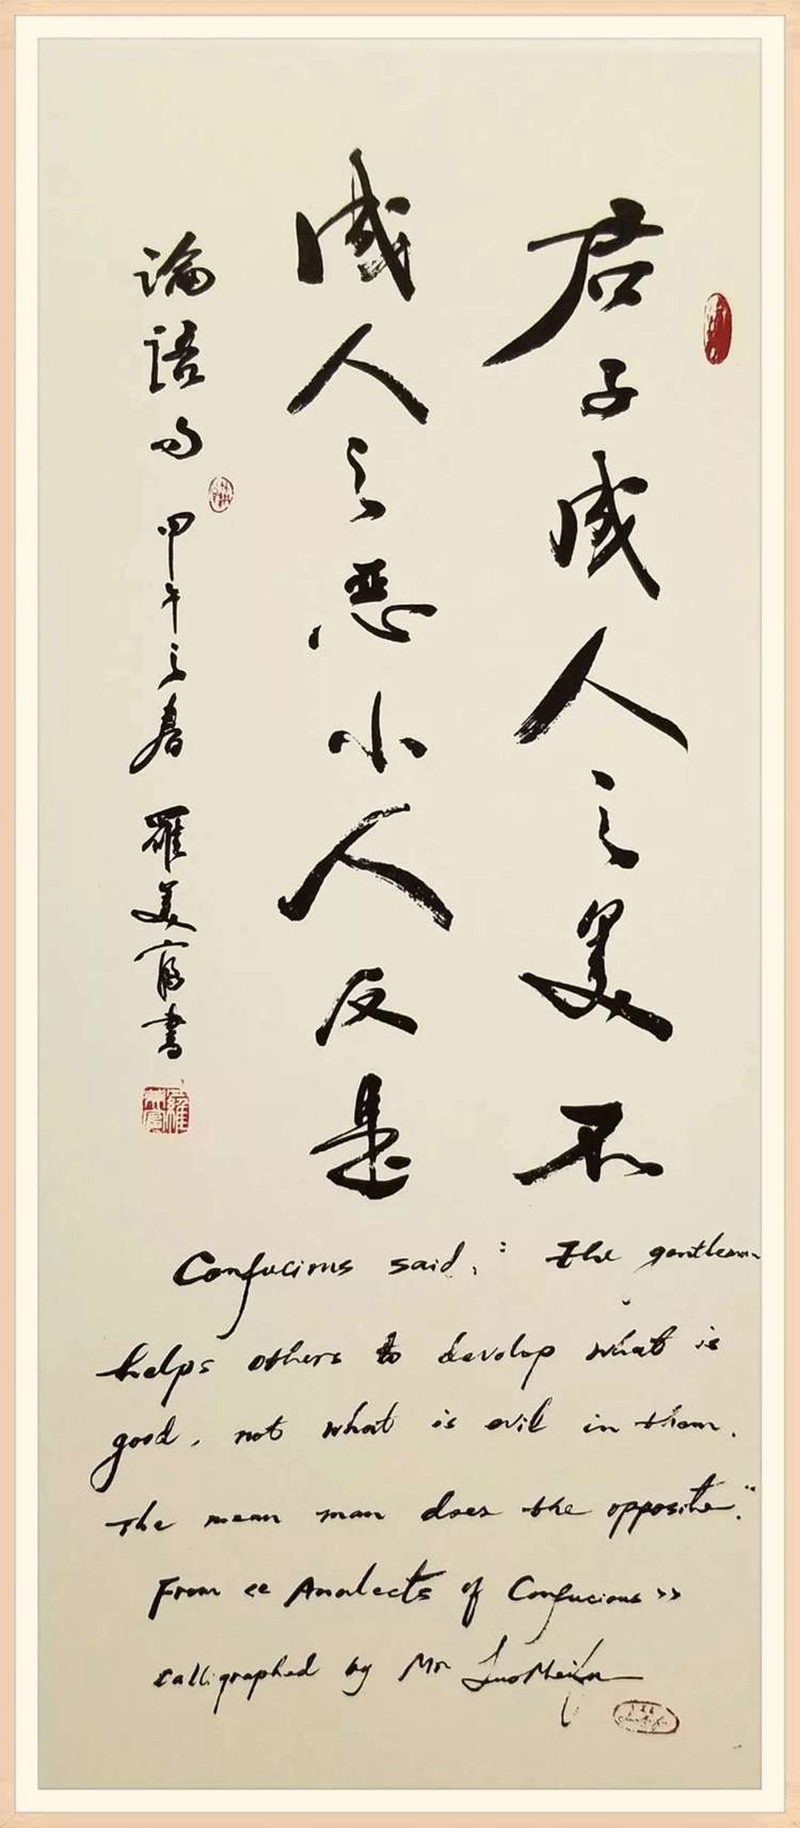 君子成人之美不
成人之恶小人反是
論語句 甲午之春 羅美富書
Confucious said, : The gentleman
helps others to develop what is
good, not what is evil in them.
The mean man does the opposite."
From << Analects of Confucious >>
Calligraphed by Mr Luo Meifu